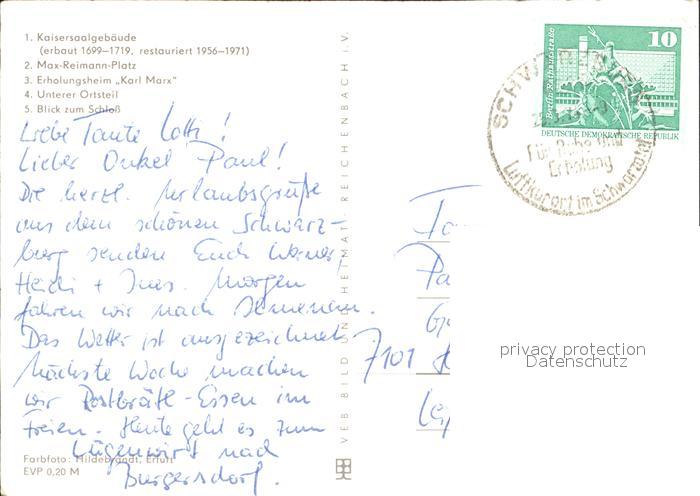 1. Kaisersaalgebäude
(erbaut 1699—1719, restauriert 1956—1971)
2. Max-Reimann-Platz
3. Erholungsheim „Karl Marx“
4. Unterer Ortsteil
5. Blick zum Schloß
Liebe Tante Lotti!
Lieber Onkel Paul!
Die herzl. Urlaubsgrüße
aus dem schönen Schwarz-
burg senden Euch Werner,
Heidi + Ines. Morgen
fahren wir nach
Das Wetter ist ausgezeichnet.
Nächste Woche machen
wir Rostbrätl-Essen im
Freien. Heute geht es zum
nach
Burgersdorf.
Farbfoto: Hildebrandt, Erfurt
EVP 0,20 M
VEB BILD UND HEIMAT REICHENBACH i. V.
10
Berlin, Rathausstraße
DEUTSCHE DEMOKRATISCHE REPUBLIK
Für Ruhe und
Erholung
Luftkurort im Schwarzatal
7101
privacy protection
Datenschutz